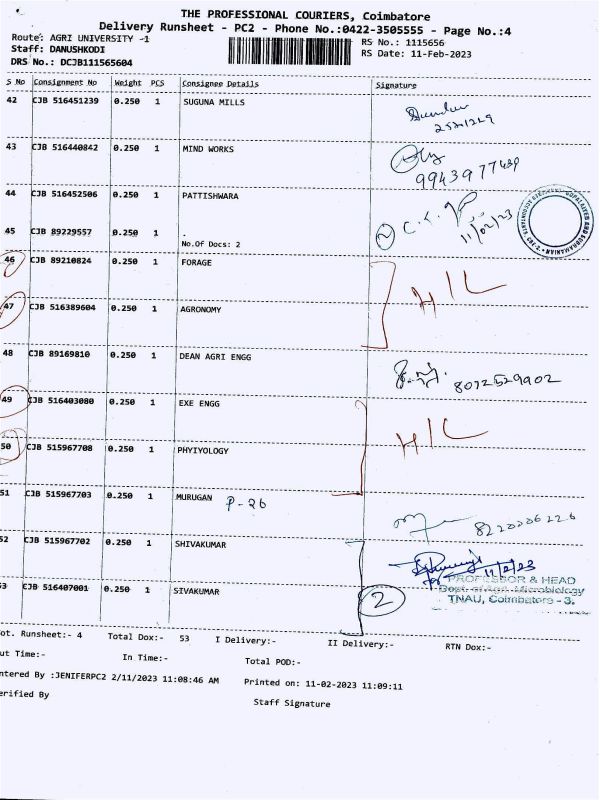 THE PROFESSIONAL COURIERS, Coimbatore
Delivery Runsheet - PC2 - Phone No.:0422-3505555 - Page No.:4
Route: AGRI UNIVERSITY -1
RS No.: 1115656
Staff: DANUSHKODI
RS Date: 11-Feb-2023
DRS No.: DCJB111565604
S No Consignment No Weight PCS Consignee Details Signature
42 CJB 516451239 0.250 1 SUGUNA MILLS
43 CJB 516440842 0.250 1 MIND WORKS
44 CJB 516452506 0.250 1 PATTISHWARA
45 CJB 89229557 0.250 1 .
11/02/23
No.Of Docs: 2
46 CJB 89210824 0.250 1 FORAGE
H/L
47 CJB 516389604 0.250 1 AGRONOMY
48 CJB 89169810 0.250 1 DEAN AGRI ENGG
8072529902
49 CJB 516403080 0.250 1 EXE ENGG
H/L
50 CJB 515967708 0.250 1 PHYIYOLOGY
51 CJB 515967703 0.250 1 MURUGAN P-26
8220206226
52 CJB 515967702 0.250 1 SHIVAKUMAR
11/2/23
PROFESSOR & HEAD
Dept. of Agrl. Microbiology
TNAU, Coimbatore - 3.
53 CJB 516407001 0.250 1 SIVAKUMAR
2
ot. Runsheet:- 4 Total Dox:- 53 I Delivery:- II Delivery:- RTN Dox:-
ut Time:- In Time:- Total POD:-
ntered By :JENIFERPC2 2/11/2023 11:08:46 AM Printed on: 11-02-2023 11:09:11
erified By
Staff Signature